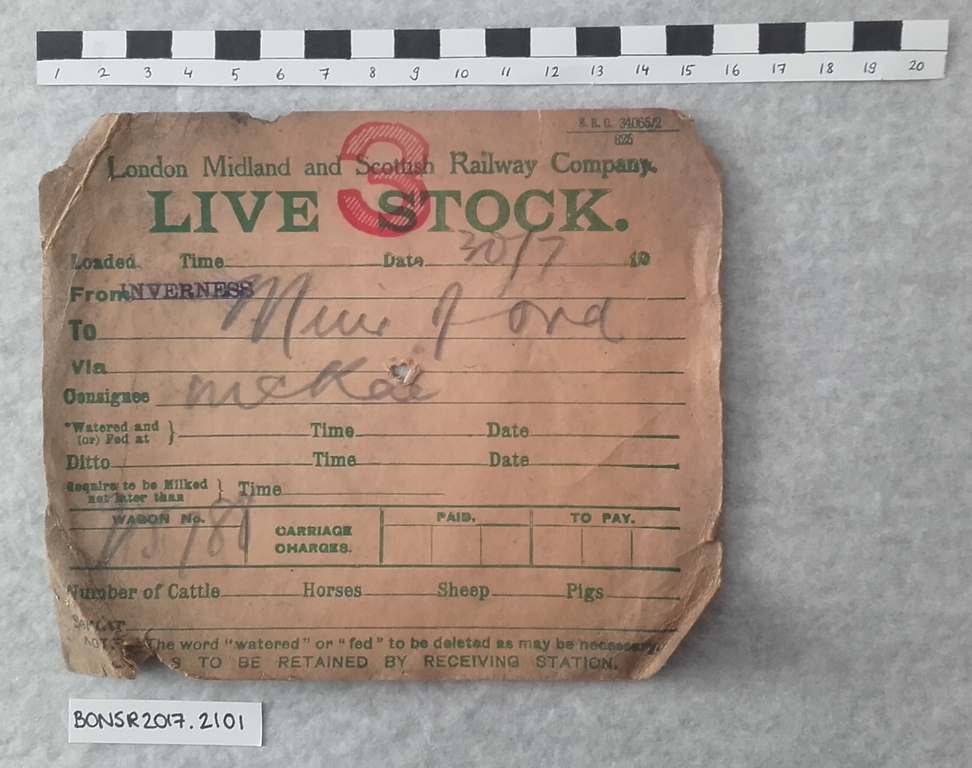 1 2 3 4 5 6 7 8 9 10 11 12 13 14 15 16 17 18 19 20
E.R.O. 34065/2
London Midland and Scottish Railway Company.
3
LIVE STOCK.
Loaded. Time Date 30/7 19
From INVERNESS
To Muir of Ord
Via
Consignee McKae
*Watered and (or) Fed at } Time Date
Ditto Time Date
Require to be Milked not later than } Time
WAGON No. CARRIAGE CHARGES. PAID. TO PAY.
Number of Cattle Horses Sheep Pigs
The word "watered" or "fed" to be deleted as may be necessary.
TO BE RETAINED BY RECEIVING STATION.
BONSR2017.2101